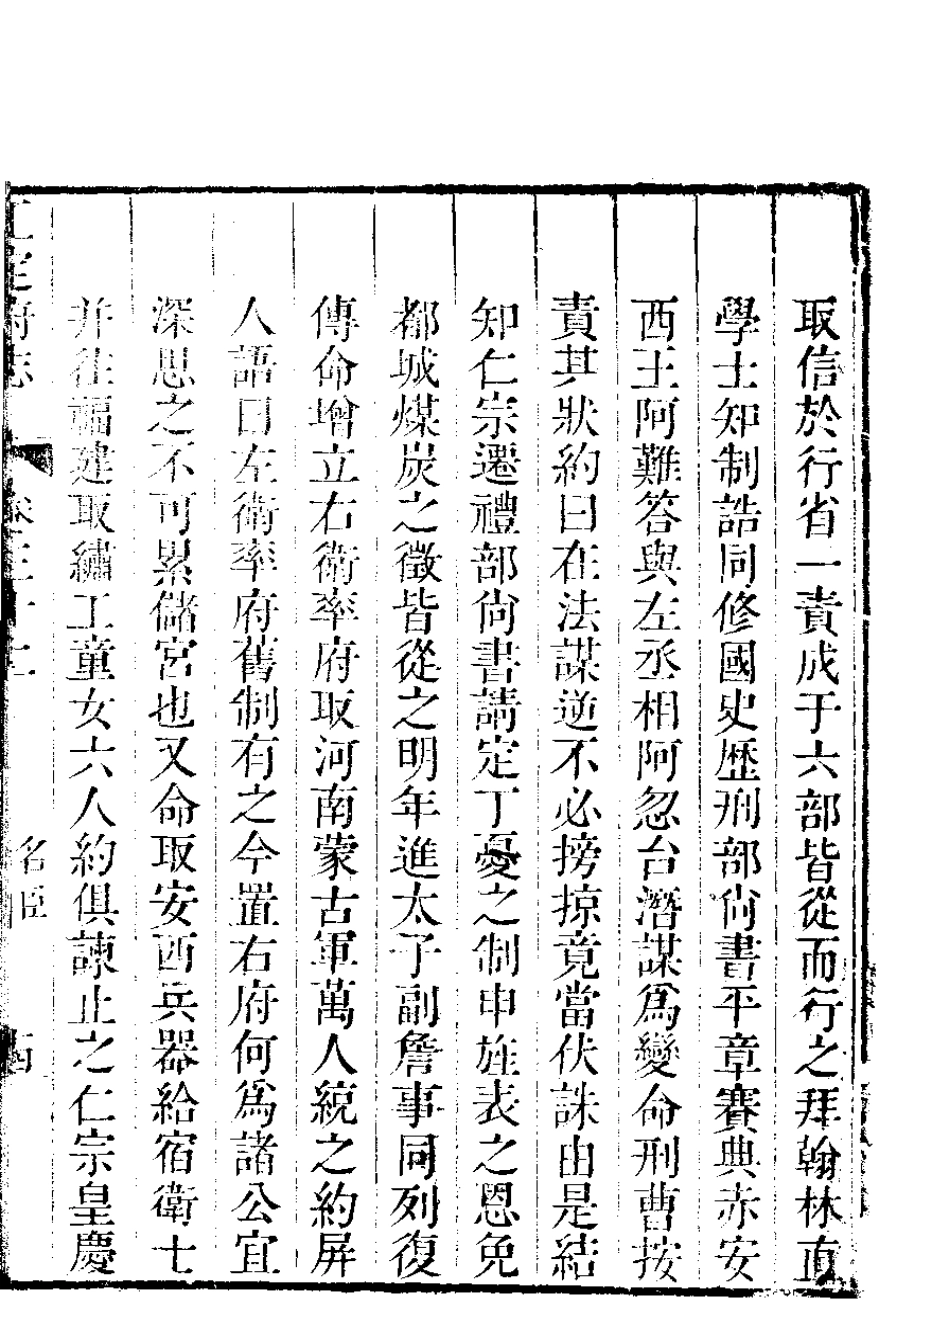 取信於行省一責成于六部皆從而行之拜翰林直
學士知制誥同修國史歷刑部尚書平章賽典赤安
西王阿難答與左丞相阿忽台潛謀爲變命刑曹按
責其狀約曰在法謀逆不必搒掠竟當伏誅由是結
知仁宗遷禮部尚書請定丁憂之制申旌表之恩免
都城煤炭之徵皆從之明年進太子副詹事同列復
傳命增立右衛率府取河南蒙古軍萬人統之約屏
人語曰左衛率府舊制有之今置右府何爲諸公宜
深思之不可累儲宮也又命取安西兵器給宿衛士
并往福建取繡工童女六人約俱諫止之仁宗皇慶
府志 卷三十二 名臣